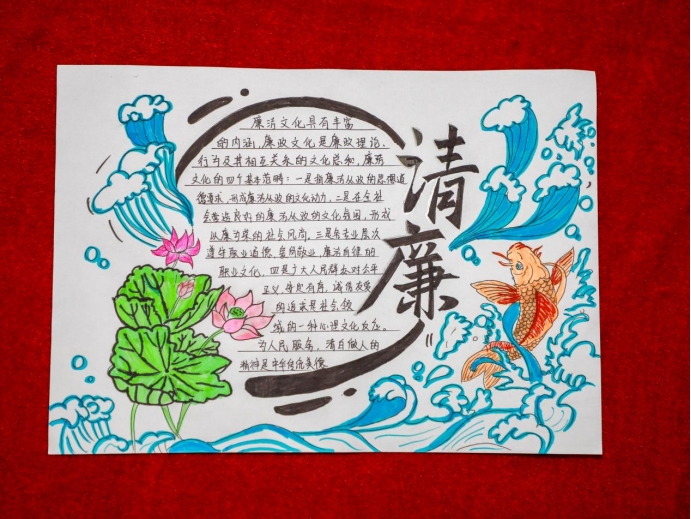 清廉
廉洁文化具有丰富
的内涵，廉政文化是廉政理论、
行为及其相互关系的文化总和，廉洁
文化的四个基本范畴：一是指廉洁从政的思想道
德要求，形成廉洁从政的文化动力，二是在全社
会营造良好的廉洁从政的文化氛围，形成
从廉为荣的社会风尚，三是各行业层次
遵守职业道德、爱岗敬业，廉洁自律的
职业文化，四是广大人民群众对公平
正义、诚信友爱
的追求是社会领
域的一种心理文化反应。
为人民服务，清白做人的
精神是中华传统美德